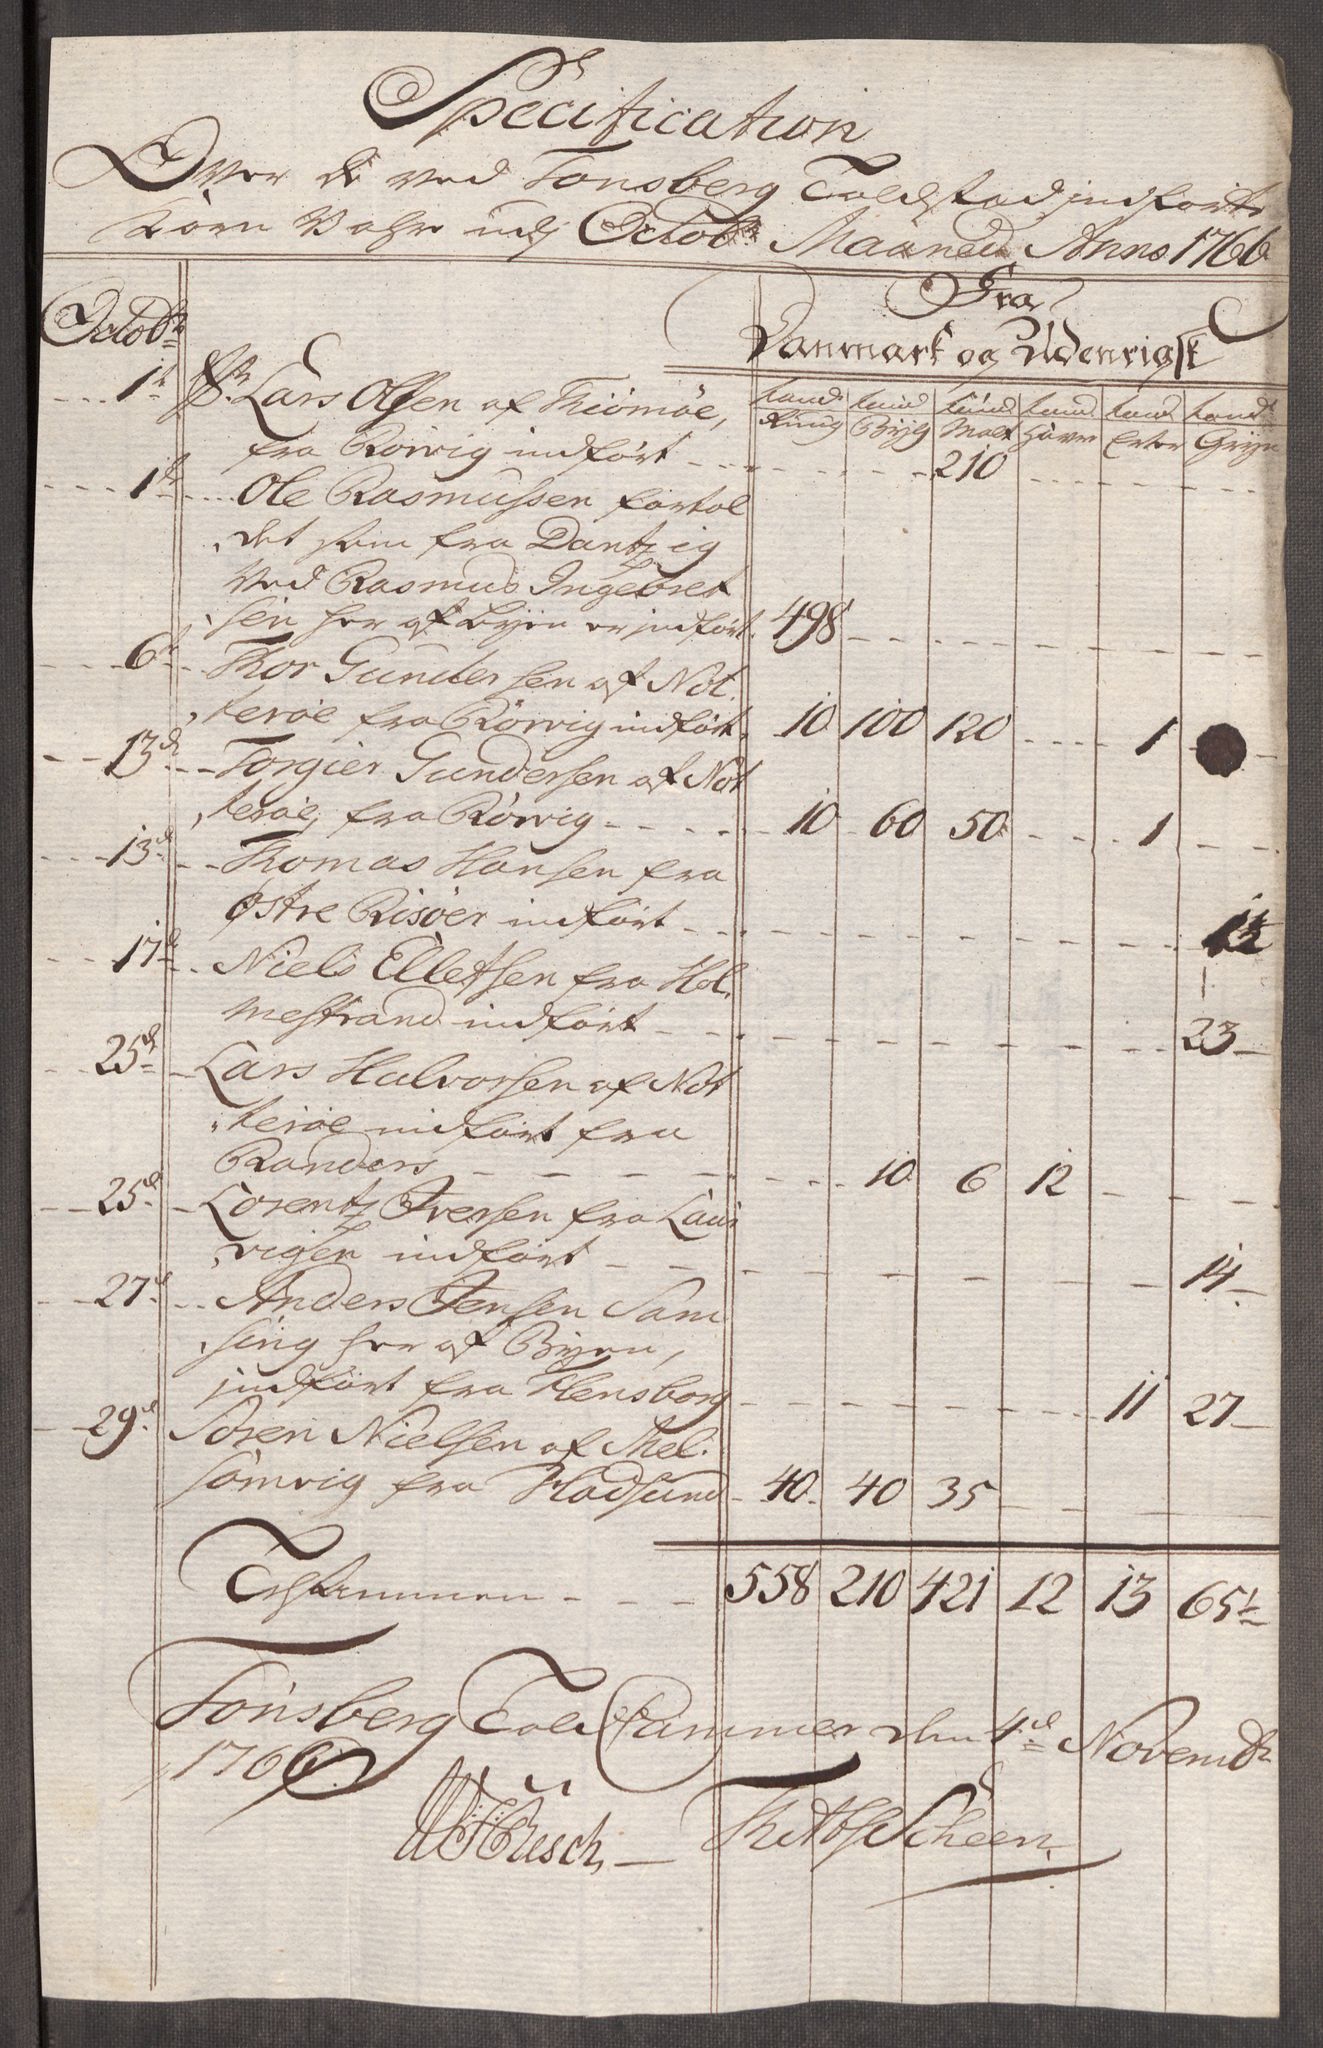 Specification
Over de ved Tonsberg Toldstad indførte
Korn Vahre udj Octobr Maaned Anno 1766
Octobr
Fra
Danmark og Udenrigsk
tønd tønd tønd tønd tønd tønd
Rúug Býg Malt Havre Erter Grýn
1te Lars Olsen af Thiömöe,
fra Rörvig indfört 210
1te Ole Rasmussen fortol
det som fra Dantzig
ved Rasmus Ingebret
sen her af býen er indfört 498
6te Thor Gundersen af Not
teröe fra Rörvig indfört 10 100 120 1
13de Torgier Gundersen af Not
teröe, fra Rörvig 10 60 50 1
13de Thomas Hansen fra
Östre Risöer indfört 1½
17de Niels Elletsen fra Hol
mestrand indfört 23
25de Lars Halvorsen af Not
teröe indfört fra
Randers 10 6 12
25de Lorentz Iversen fra Laur
vigen indfört 14
27de Anders Jensen Sam
sing her af Býen,
indfört fra Flensborg 11 27
29de Sören Nielsen af Mel
somvig fra Hadsund 40 40 35
Tilsammen 558 210 421 12 13 65½
Tonsberg Told Cammer den 4de Novembr
1766
Büsch Scheen